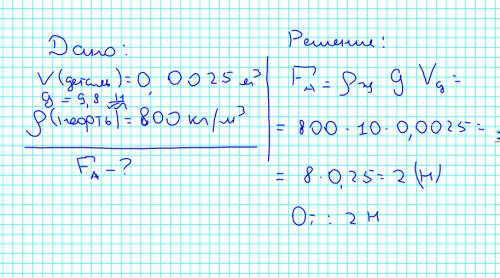 Дано:
V(деталь) = 0,0025 м³
g = 9,8 Н/кг
ρ(нефть) = 800 кг/м³
F_A - ?
Решение:
F_A = ρ_ж g V_д =
= 800 · 10 · 0,0025 =
= 8 · 0,25 = 2 (Н)
От: 2 Н